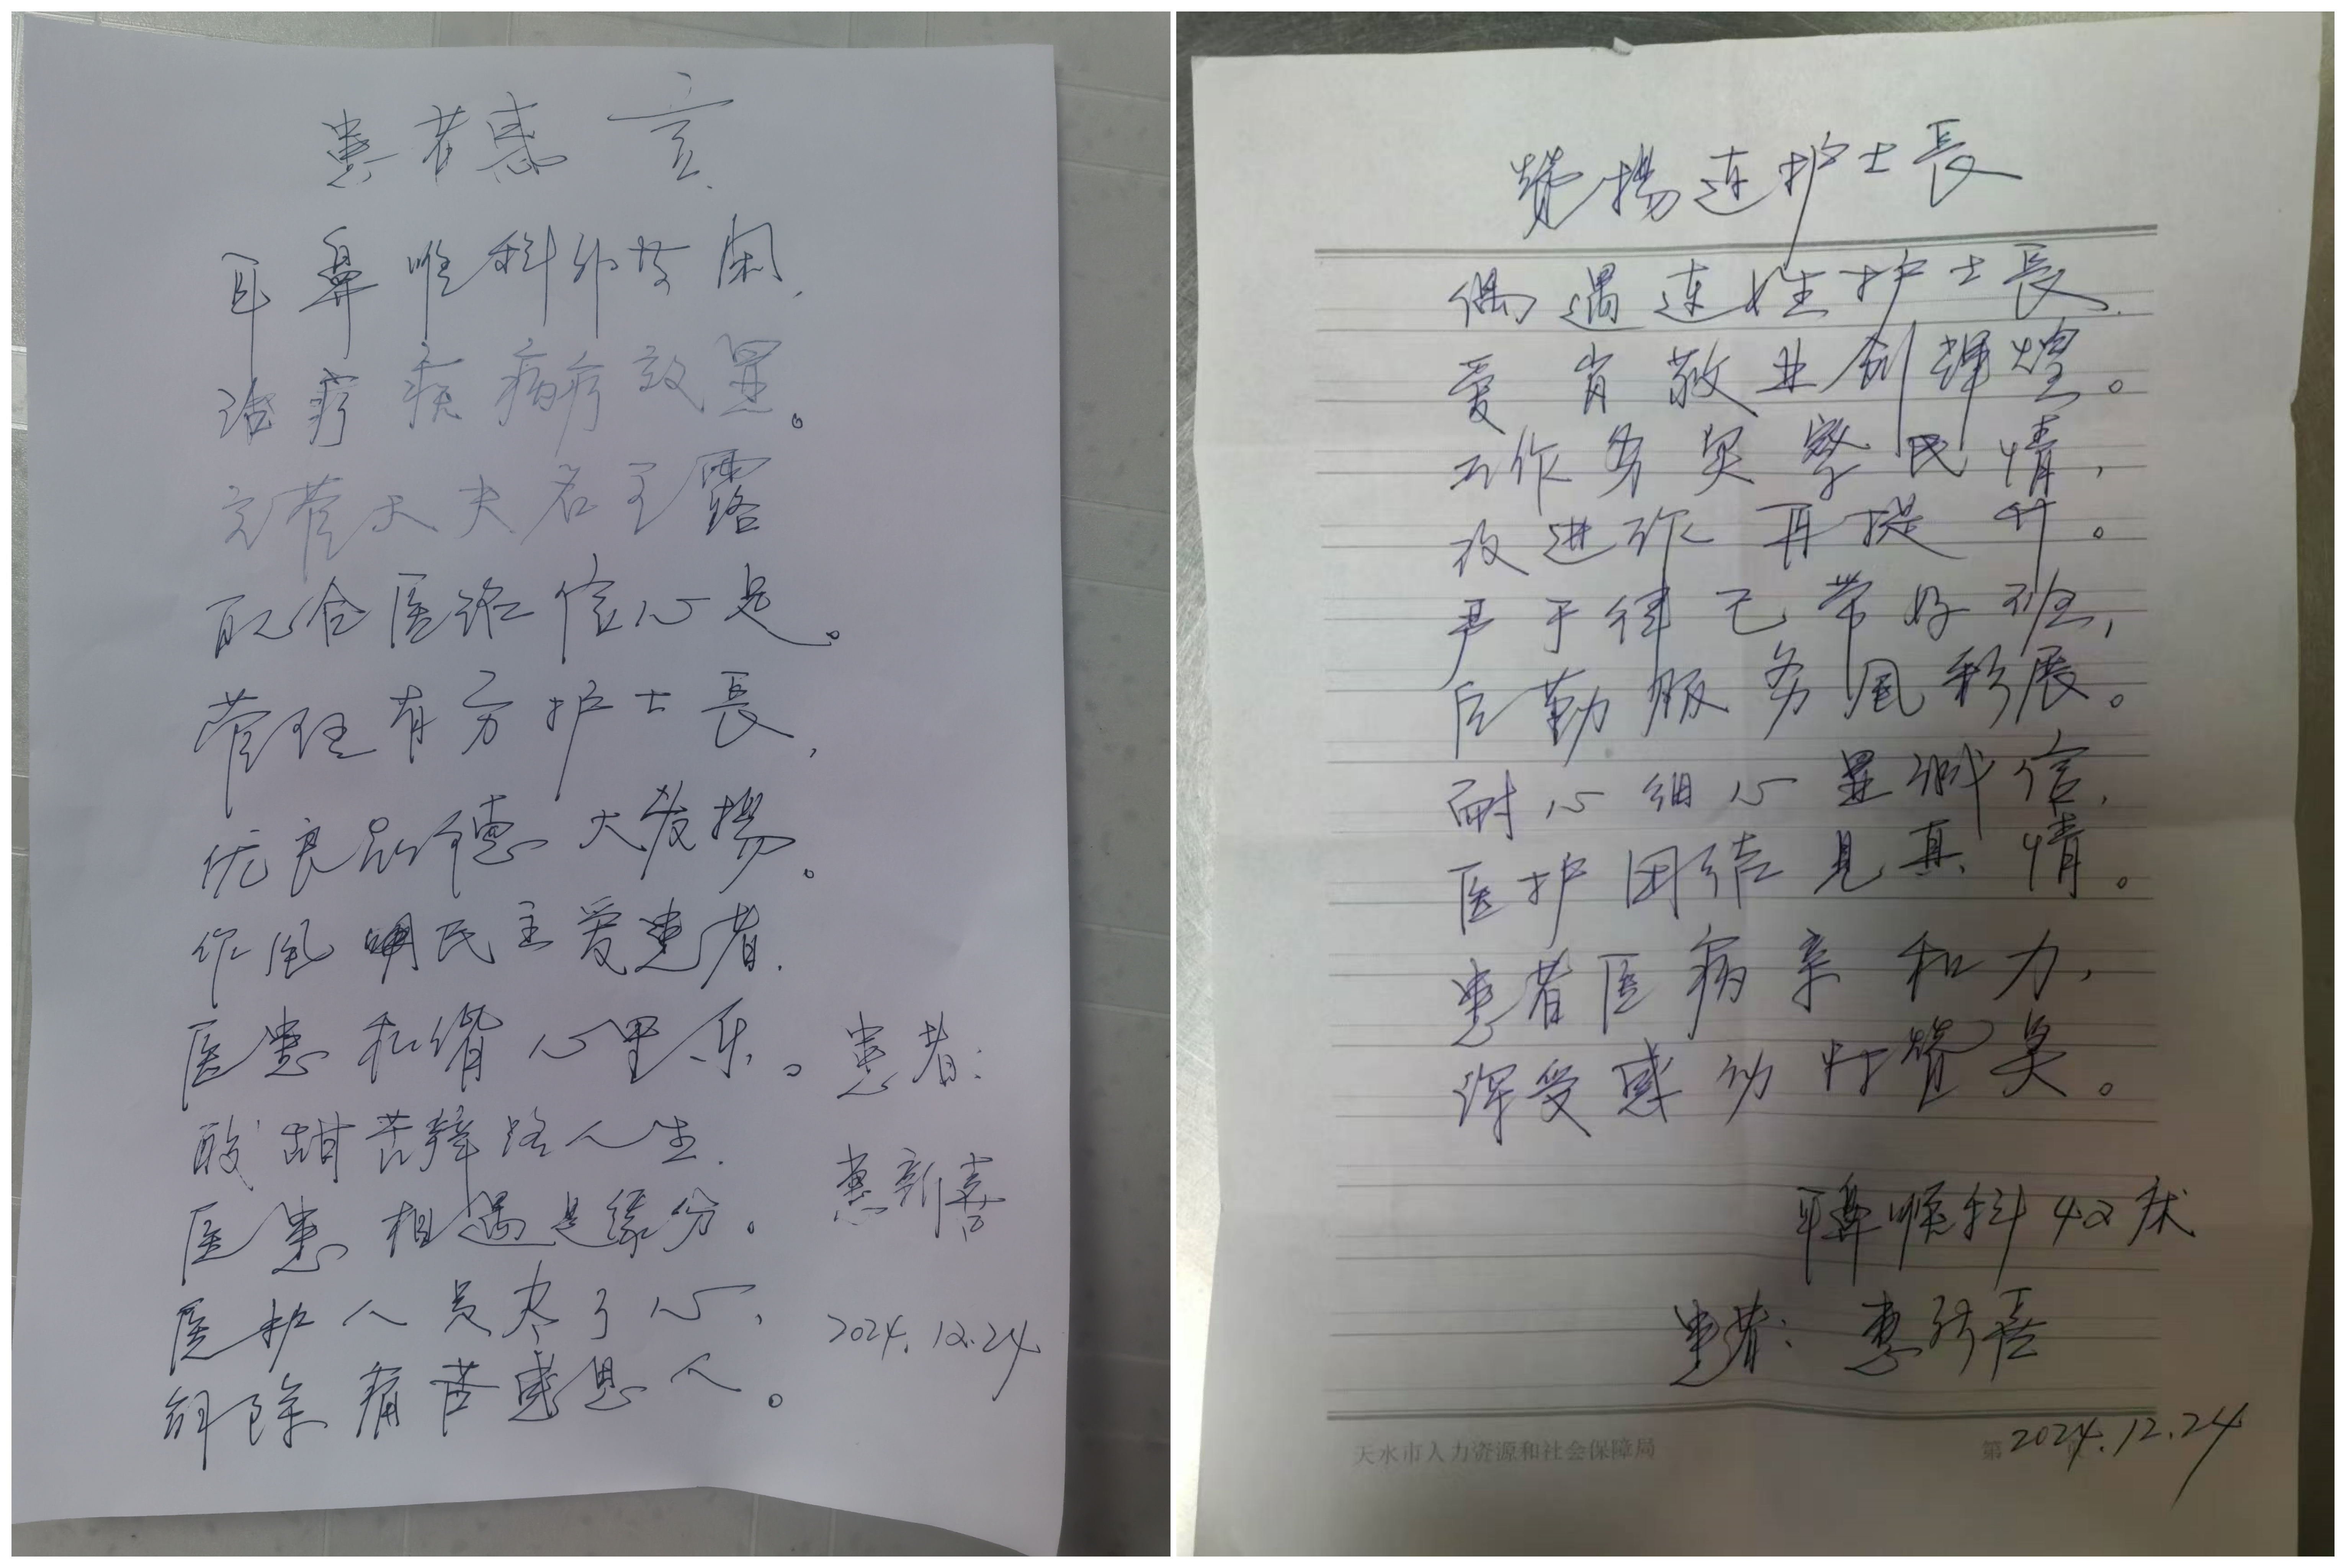 患者感言
耳鼻喉科外
治疗疾病疗效显。
主管大夫名王露
配合医治信心足。
管理有方护士長,
优良品德大发揚。
作风明民主爱患者.
医患和谐心里乐。
酸甜苦辣路人生.
医患相遇是缘分。
医护人员尽了心,
解除痛苦感恩人。
患者:
惠新喜
2024.12.24
赞揚连护士長
偶遇连姓护士長.
爱肖敬业创辉煌。
工作务实察民情,
改进作再提升。
严于律己带好班,
后勤服务风彩展。
耐心细心显诚信,
医护团结见真情。
患者医病亲和力,
深受感动
耳鼻喉科42床
患者:惠新喜
天水市人力资源和社会保障局
第
2024.12.24